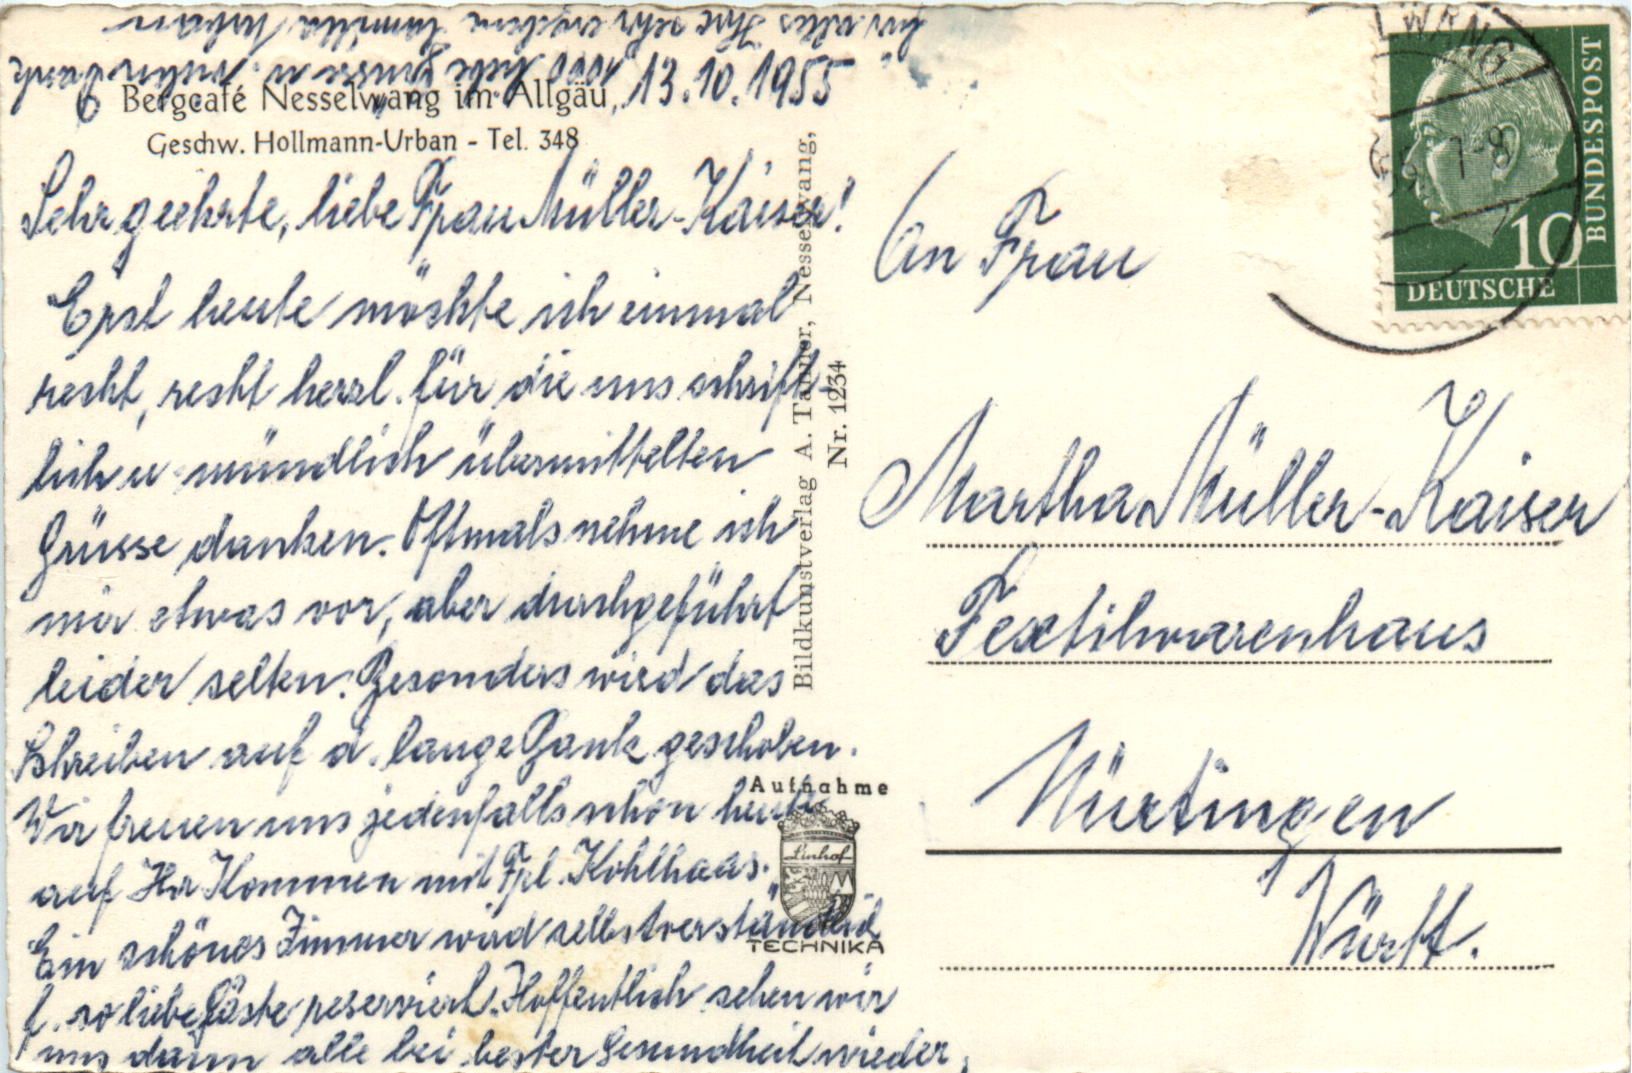 Bergcafé Nesselwang im Allgäu, 13.10.1955
Geschw. Hollmann-Urban - Tel. 348
Sehr geehrte, liebe Frau Müller-Kaiser!
Erst heute möchte ich einmal
recht, recht herzl. für die uns schrift-
lich u. mündlich übermittelten
Grüsse danken. Oftmals nehme ich
mir etwas vor, aber durchgeführt
leider selten. Besonders wird das
Schreiben auf d. lange Bank geschoben.
Wir freuen uns jedenfalls schon heute
auf Ihr Kommen mit Frl. Kohlhaas.
Ein schönes Zimmer wird selbstverständlich
f. so liebe Gäste reserviert. Hoffentlich sehen wir
uns dann alle bei bester Gesundheit wieder.
1000 liebe Grüsse u. vielen Dank
für alles Ihre sehr ergebene Familie
Bildkunstverlag A. Tanner, Nesselwang,
Nr. 1234
Aufnahme
Linhof
TECHNIKA
WANG
1-8
10
DEUTSCHE
BUNDESPOST
An Frau
Martha Müller-Kaiser
Textilwarenhaus
Nürtingen
Württ.